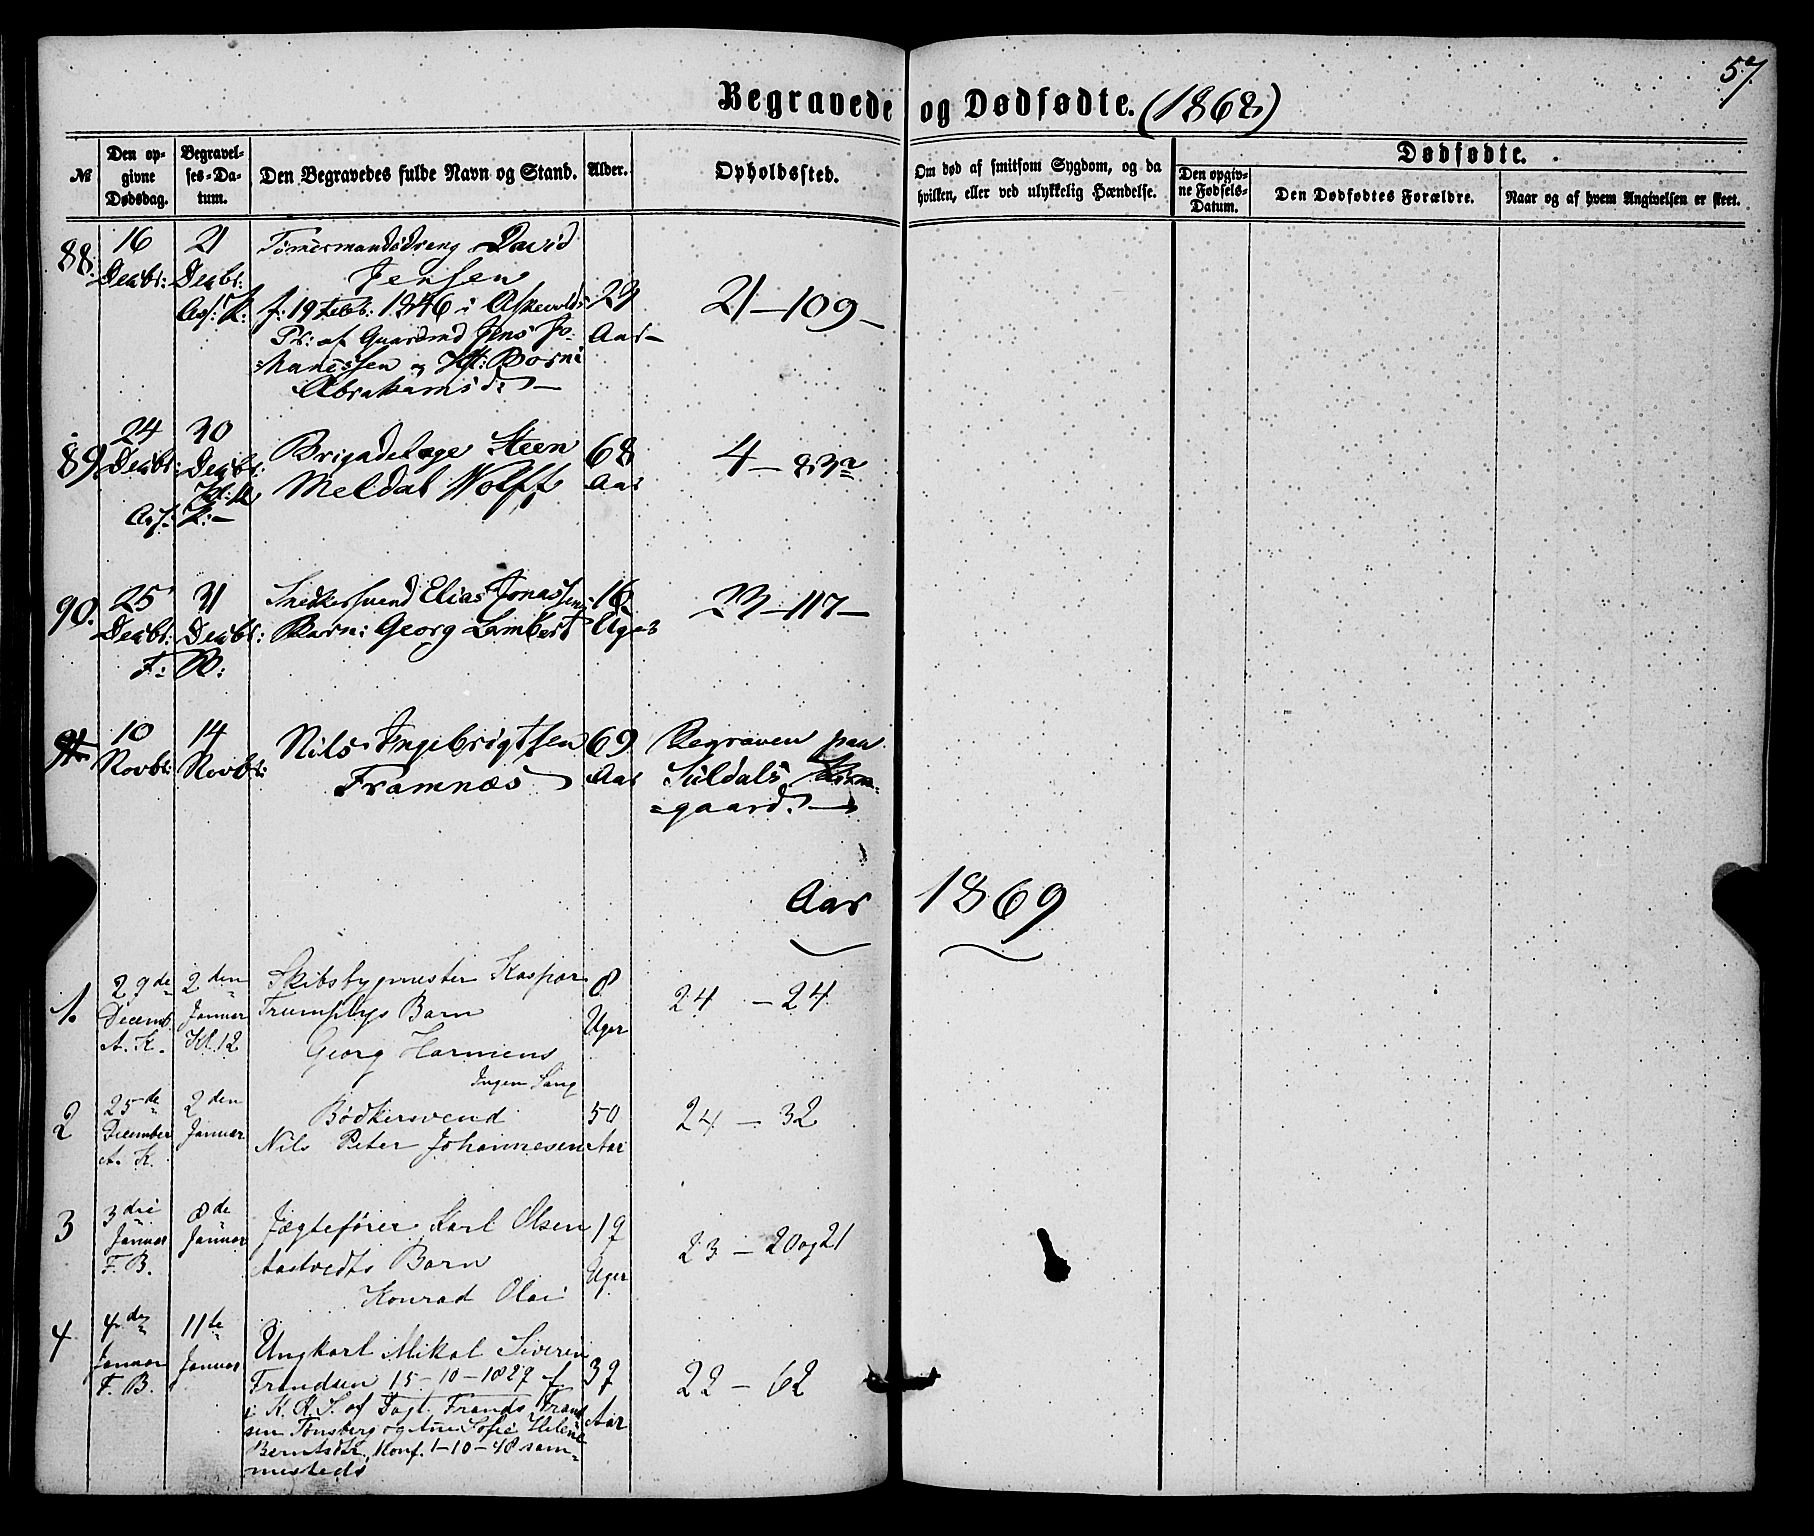 57.
Begravede og Dødfødte. (1868)
№
Den opgivne Dødsdag.
Begravelses-Datum.
Den Begravedes fulde Navn og Stand.
Alder.
Opholdssted.
Om død af smitsom Sygdom, og da hvilken, eller ved ulykkelig Hændelse.
Dødfødte.
Den opgivne Fødsels-Datum.
Den Dødfødtes Forældre.
Naar og af hvem Angivelsen er skeet.
88.
16 Decbr:
21 Decbr:
Ass: K:
Tømermandsdreng David
Jensen
f: 19 Febr: 1846 i Askevolds
Pr: af Gaardmd Jens Jo-
hanessen og H: Borni
Abrahamsd:
Aar
21 – 109 –
89.
24 Decbr:
30 Decbr:
Kl: 12
Ass: K: –
Brigadelæge Steen
Meldal Wolff
68 Aar
4 – 83a
90.
25 Decbr:
31 Decbr:
F: B:
Snedkersvend Elias Jonassens
Barn: Georg Lambert
16 Uger
23 – 117 –
10 Novbr:
14 Novbr:
Nils Ingebrigtsen
Framnæs
69 Aar
Begraven paa
Suldals
gaard.
Aar 1869
1.
29de Decemb.
A. K.
2den Januar
Kl. 12
Skibsbygmester Kaspar
Trumphys Barn
Georg Harmens
Ingen Sang
8 Uger
24 – 24
2
25de December
A. K.
2den Januar
Bødkersvend
Nils Peter Johannesen
50 Aar
24 – 32
3
3die Januar
F. B.
8de Januar
Jægtefører Karl Olsen
Aastvedts Barn
Konrad Olai
19 Uger
23 – 20 og 21
4
4de Januar
F. B.
11te Januar
Ungkarl Mikal Severin
Frandsen 15–10–1829 f
i K. K. S. af Fogt. Frands Frand
sen Tønsberg og Ane Sofie Helene
Berntsdtr. Konf. 1–10–48 sam-
mesteds
39 Aar
22 – 62